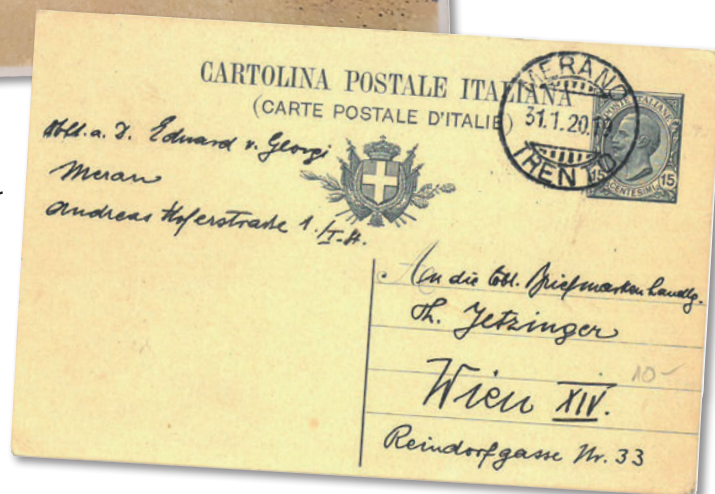 CARTOLINA POSTALE ITALIANA
(CARTE POSTALE D'ITALIE)
MERANO
31.1.20.19
TRENTO
POSTE ITALIANE
15 CENTESIMI 15
Obst. a. D. Eduard v. Georgi
Meran
Andreas Hoferstraße 1. /I. St.
An die löbl. Briefmarkenhandlg.
Th. Jetzinger
10-
Wien XIV.
Reindorfgasse Nr. 33